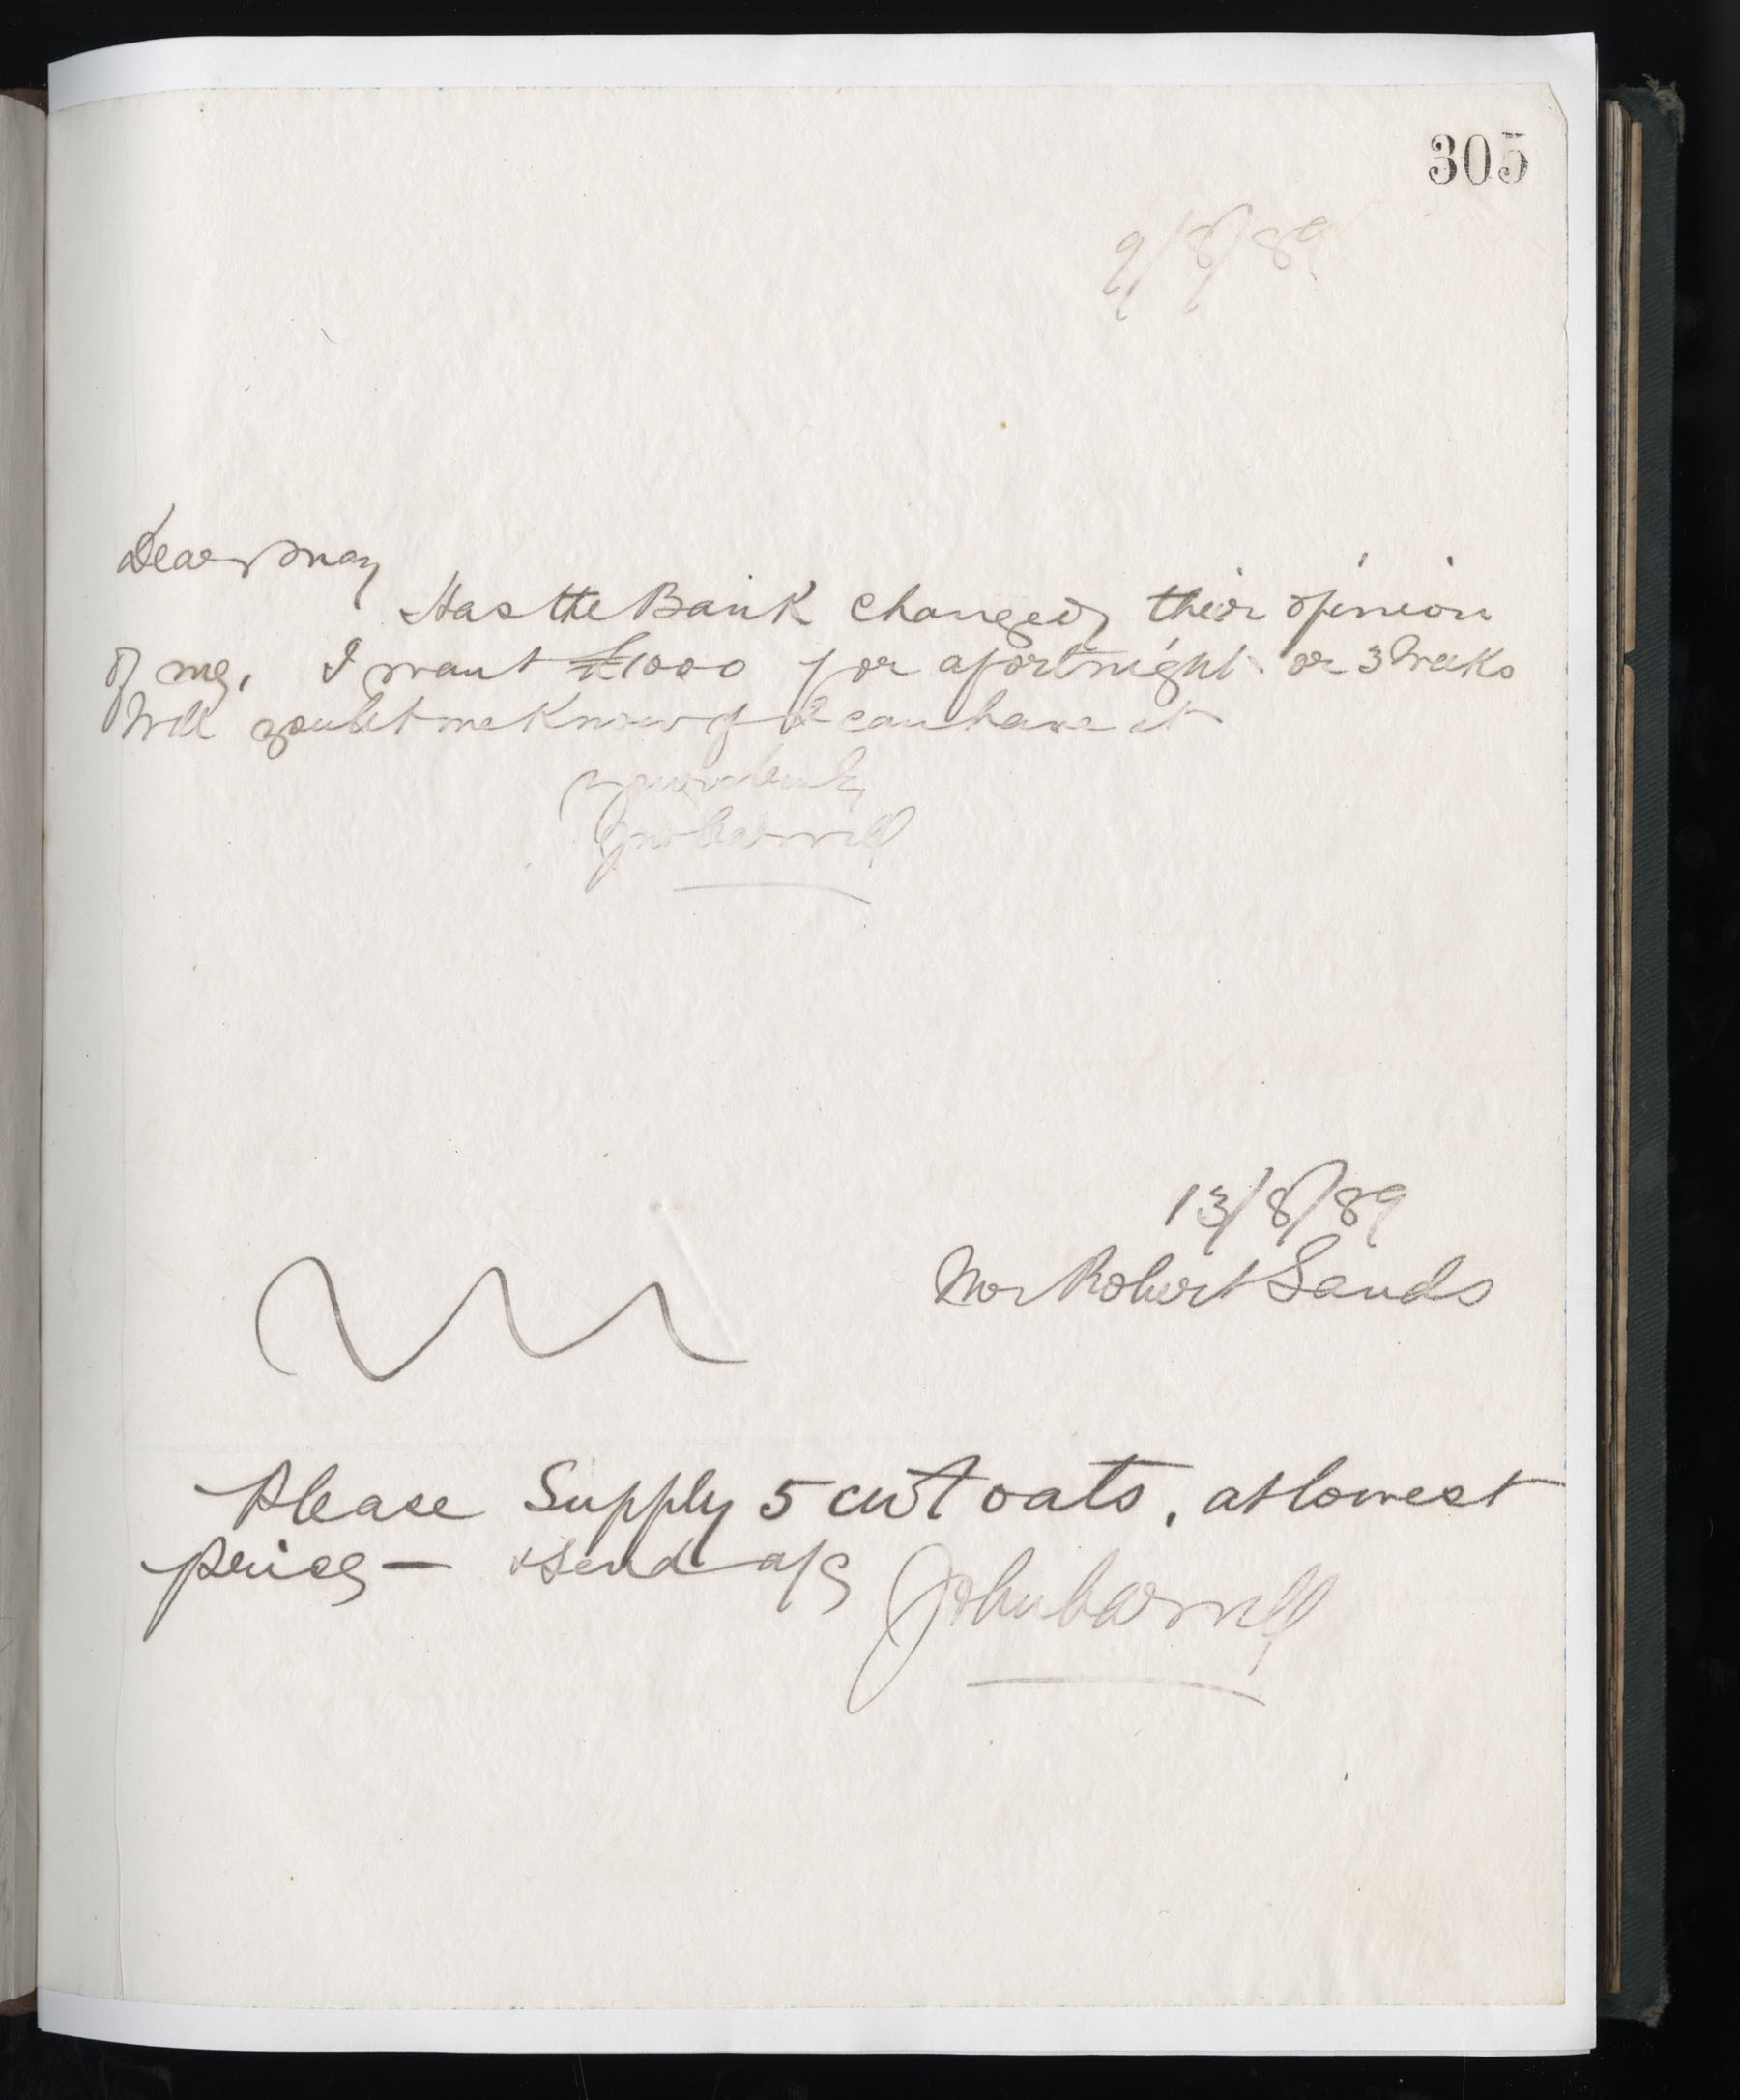 305
9/8/89
Dear May
Has the Bank changed their opinion
of me. I want £1000 for a fortnight or 3 Weeks
Will you let me know if I can have it
yours truly
13/8/89
Mr Robert Sands
Please Supply 5 cwt oats, at lowest
price — & send a/c John